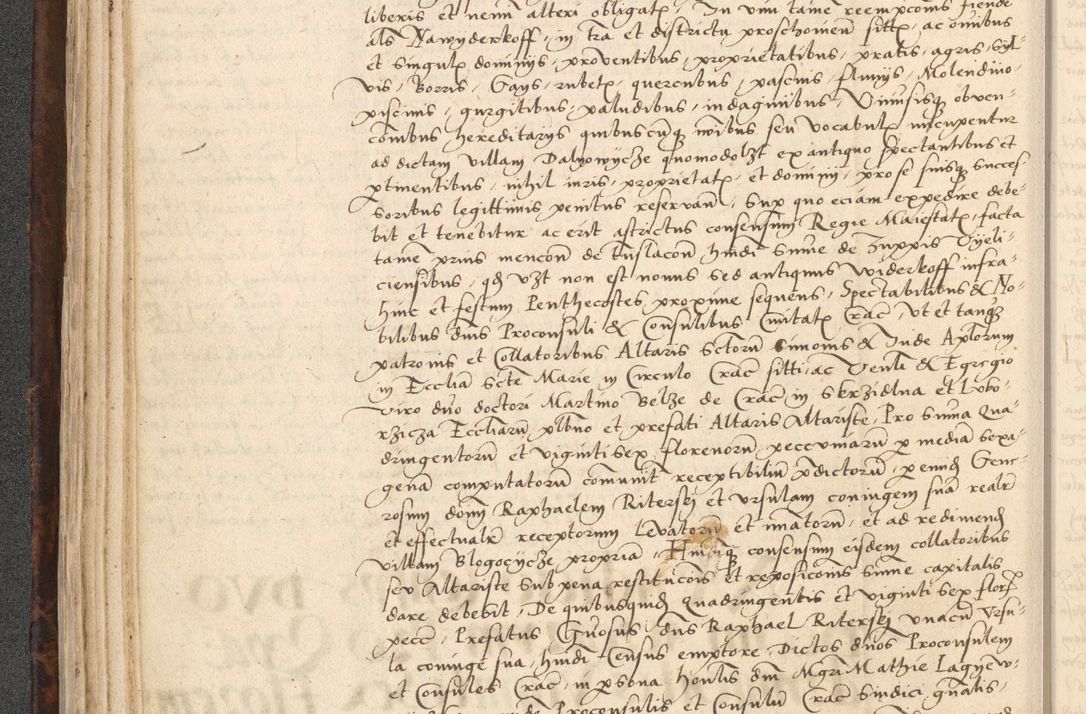 liberis et nemi alteri obligatꝭ, In vim tamē reempcõnis fiende
als Nawyderkoff, in tra et districtu proschoviēn sittꝭ, ac omibus
et singulꝭ dominijs, proventibus, proprietatibus, pratis, agris, Syl-
vis, Borris, Gays, rubetꝭ, quercubus, pascuis, flumijs, Molendino
piscinis, gurgitibus, paludibus, indaginibus, Vniversisqꝫ obven-
conibus hereditarijs quibuscunqꝫ noibus seu vocabulꝭ nuncupentur
ad dictam villam Dalyowycze quomodolꝫt ex antiquo spectantibus et
ptinentibus, nihil iuris, proprietatꝭ, et dominij, pro se suisqꝫ succes-
soribus legittimis penitus reservañ, Sup quo eciam expedire debe-
bit et tenebitur ac erit astrictus consensum Regie Maiestatꝭ, facta
tamē prius mencõñ de Cuslacoñ hmõi sume de Zuppis Vyeli-
ciensibus, qđ vꝫt non est novus sed antiquus widerkoff infra
hinc et festum Penthecostes, proxime sequens, Spectabilibus & No-
bilibus dñis Proconsuli & Consulibus Civitatꝭ Crac, vt et tanqꝫ
patronis et Collatoribus Altaris sctorū Simonis & Jude Aplorum
in Ecclīa Scte Marie in Circulo Crac sitti, ac Venli & Egregio
viro dño doctori Martino Belze de Crac in Skrzidlna et Lubo-
rzicza Ecclīarū plbno et prefati Altaris Altariste, Pro suma Qua-
dringentorū et viginti sex florenorū peccuniarū p mediā sexa-
gena computatorū comunit receptibiliū pdictorū, p eund Gene-
rosum domi Raphaelem Ritersky et vrsulam coniugem suā realr
et effectualr receptorum Levatorū et inatorū, et ad redimend
villam Blogocycze propria, Huiusqꝫ consensum eisdem collatoribus
seu Altariste sub pena restitucõis et reposicõnis sume capitalis
dare debebit, De quibusquid Quadringentis et viginti sex florꝭ
pecc, Prefatus Gñosus dñs Raphael Ritersky vnacū vrsu-
la coniuge sua, hmõi Census emptore Dictos dños Proconsulem
et Consules Crac, in psona honlis dm Mgri Mathie Lagyew-
Proconsulis et Consulū Crac Sindici, gñalis,